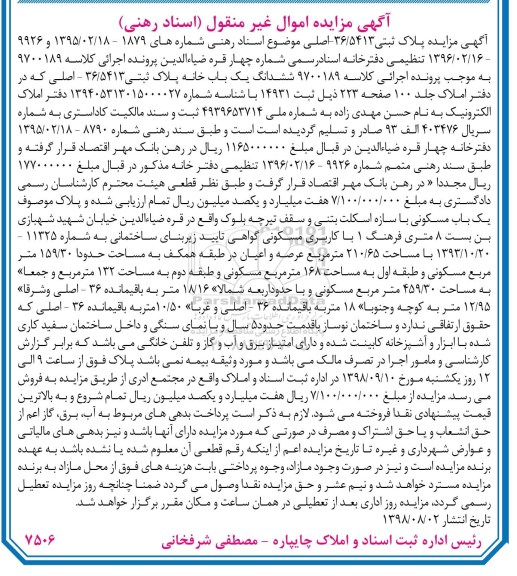 آگهی مزایده اموال غیر منقول (اسناد رهنی)
آگهی مزایده پلاک ثبتی۳۶/۵۴۱۳-اصلی موضوع اسناد رهنی شماره های ۱۸۷۹ - ۱۳۹۵/۰۲/۱۸ و ۹۹۲۶
- ۱۳۹۶/۰۲/۱۶ تنظیمی دفترخانه اسنادرسمی شماره چهار قره ضیاءالدین پرونده اجرائی کلاسه ۹۷۰۰۱۸۹
به موجب پرونده اجرائی کلاسه ۹۷۰۰۱۸۹ ششدانگ یک باب خانه پلاک ثبتی۳۶/۵۴۱۳ - اصلی که در
دفتر املاک جلد ۱۰۰ صفحه ۲۲۳ ذیل ثبت ۱۴۹۳۱ با شناسه شماره ۱۳۹۴۰۵۳۱۳۰۱۵۰۰۰۰۲۷ دفتر املاک
الکترونیک به نام حسن مهدی زاده به شماره ملی ۴۹۳۹۶۵۳۷۱۴ ثبت و سند مالکیت کاداستری به شماره
سریال ۴۰۳۴۷۶ الف ۹۳ صادر و تسلیم گردیده است است و طبق سند رهنی شماره ۸۷۹۰ - ۱۳۹۵/۰۲/۱۸
دفترخانه چهار قره ضیاءالدین در قبال مبلغ ۱۱۶۵۰۰۰۰۰۰ ریال در رهن بانک مهر اقتصاد قرار گرفته و
طبق سند رهنی متمم شماره ۹۹۲۶ - ۱۳۹۶/۰۲/۱۶ تنظیمی دفتر خانه مذکور در قبال مبلغ ۱۷۷۰۰۰۰۰۰
ریال مجددا « در رهن بانک مهر اقتصاد قرار گرفت و طبق نظر قطعی هیئت محترم کارشناسان رسمی
دادگستری به مبلغ ۷/۱۰۰/۰۰۰/۰۰۰ هفت میلیارد و یکصد میلیون ریال تمام ارزیابی شده و پلاک موصوف
یک باب مسکونی با سازه اسکلت بتنی و سقف تیرچه بلوک واقع در قره ضیاءالدین خیابان شهید شهبازی
بن بست ۸ متری فرهنگ ۱ با کاربری مسکونی گواهی تایید زیربنای ساختمانی به شماره ۱۱۳۲۵ -
۱۳۹۳/۱۰/۲۰ با مساحت ۲۱۰/۶۵ مترمربع عرصه و اعیان در طبقه همکف به مساحت حدودا ۱۵۹/۳۰ متر
مربع مسکونی و طبقه اول به مساحت ۱۶۸ مترمربع مسکونی و طبقه دوم به مساحت ۱۳۲ مترمربع و جمعا»
به مساحت ۴۵۹/۳۰ متر مربع مسکونی و با حدوداربعه شمالا» ۱۸/۱۶ متر به باقیمانده ۳۶ - اصلی وشرقا»
۱۲/۹۵ متر به کوچه وجنوبا» ۱۸ متربه باقیمانده ۳۶ - اصلی و غربا» ۱۰/۵۰متربه باقیمانده ۳۶ - اصلی که
حقوق ارتفاقی ندارد و ساختمان نوساز باقدمت حدود۵ سال و با نمای سنگی و داخل ساختمان سفید کاری
شده با ابزار و آشپزخانه کابینت شده و دارای امتیاز برق و آب و گاز و تلفن خانگی می باشد که برابر گزارش
کارشناسی و مامور اجرا در تصرف مالک می باشد و مورد وثیقه بیمه نمی باشد پلاک فوق از ساعت ۹ الی
۱۲ روز یکشنبه مورخ ۱۳۹۸/۰۹/۱۰ در اداره ثبت اسناد و املاک واقع در مجتمع ادری از طریق مزایده به فروش
می رسد. مزایده از مبلغ ۷/۱۰۰/۰۰۰/۰۰۰ ریال هفت میلیارد و یکصد میلیون ریال تمام شروع و به بالاترین
قیمت پیشنهادی نقدا فروخته می شود. لازم به ذکر است پرداخت بدهی های مربوط به آب، برق، گاز اعم از
حق انشعاب و یا حق اشتراک و مصرف در صورتی که مورد مزایده دارای آنها باشد و نیز بدهی های مالیاتی
و عوارض شهرداری و غیره تا تاریخ مزایده اعم از اینکه رقم قطعی آن معلوم شده یا نشده باشد به عهده
برنده مزایده است و نیز در صورت وجود مازاد، وجوه پرداختی بابت هزینه های فوق از محل مازاد به برنده
مزایده مسترد خواهد شد و نیم عشر و حق مزایده نقدا وصول می گردد ضمنا چنانچه روز مزایده تعطیل
رسمی گردد، مزایده روز اداری بعد از تعطیلی در همان ساعت و مکان مقرر برگزار خواهد شد.
تاریخ انتشار ۱۳۹۸/۰۸/۰۲
رئیس اداره ثبت اسناد و املاک چایپاره - مصطفی شرفخانی ۷۵۰۶